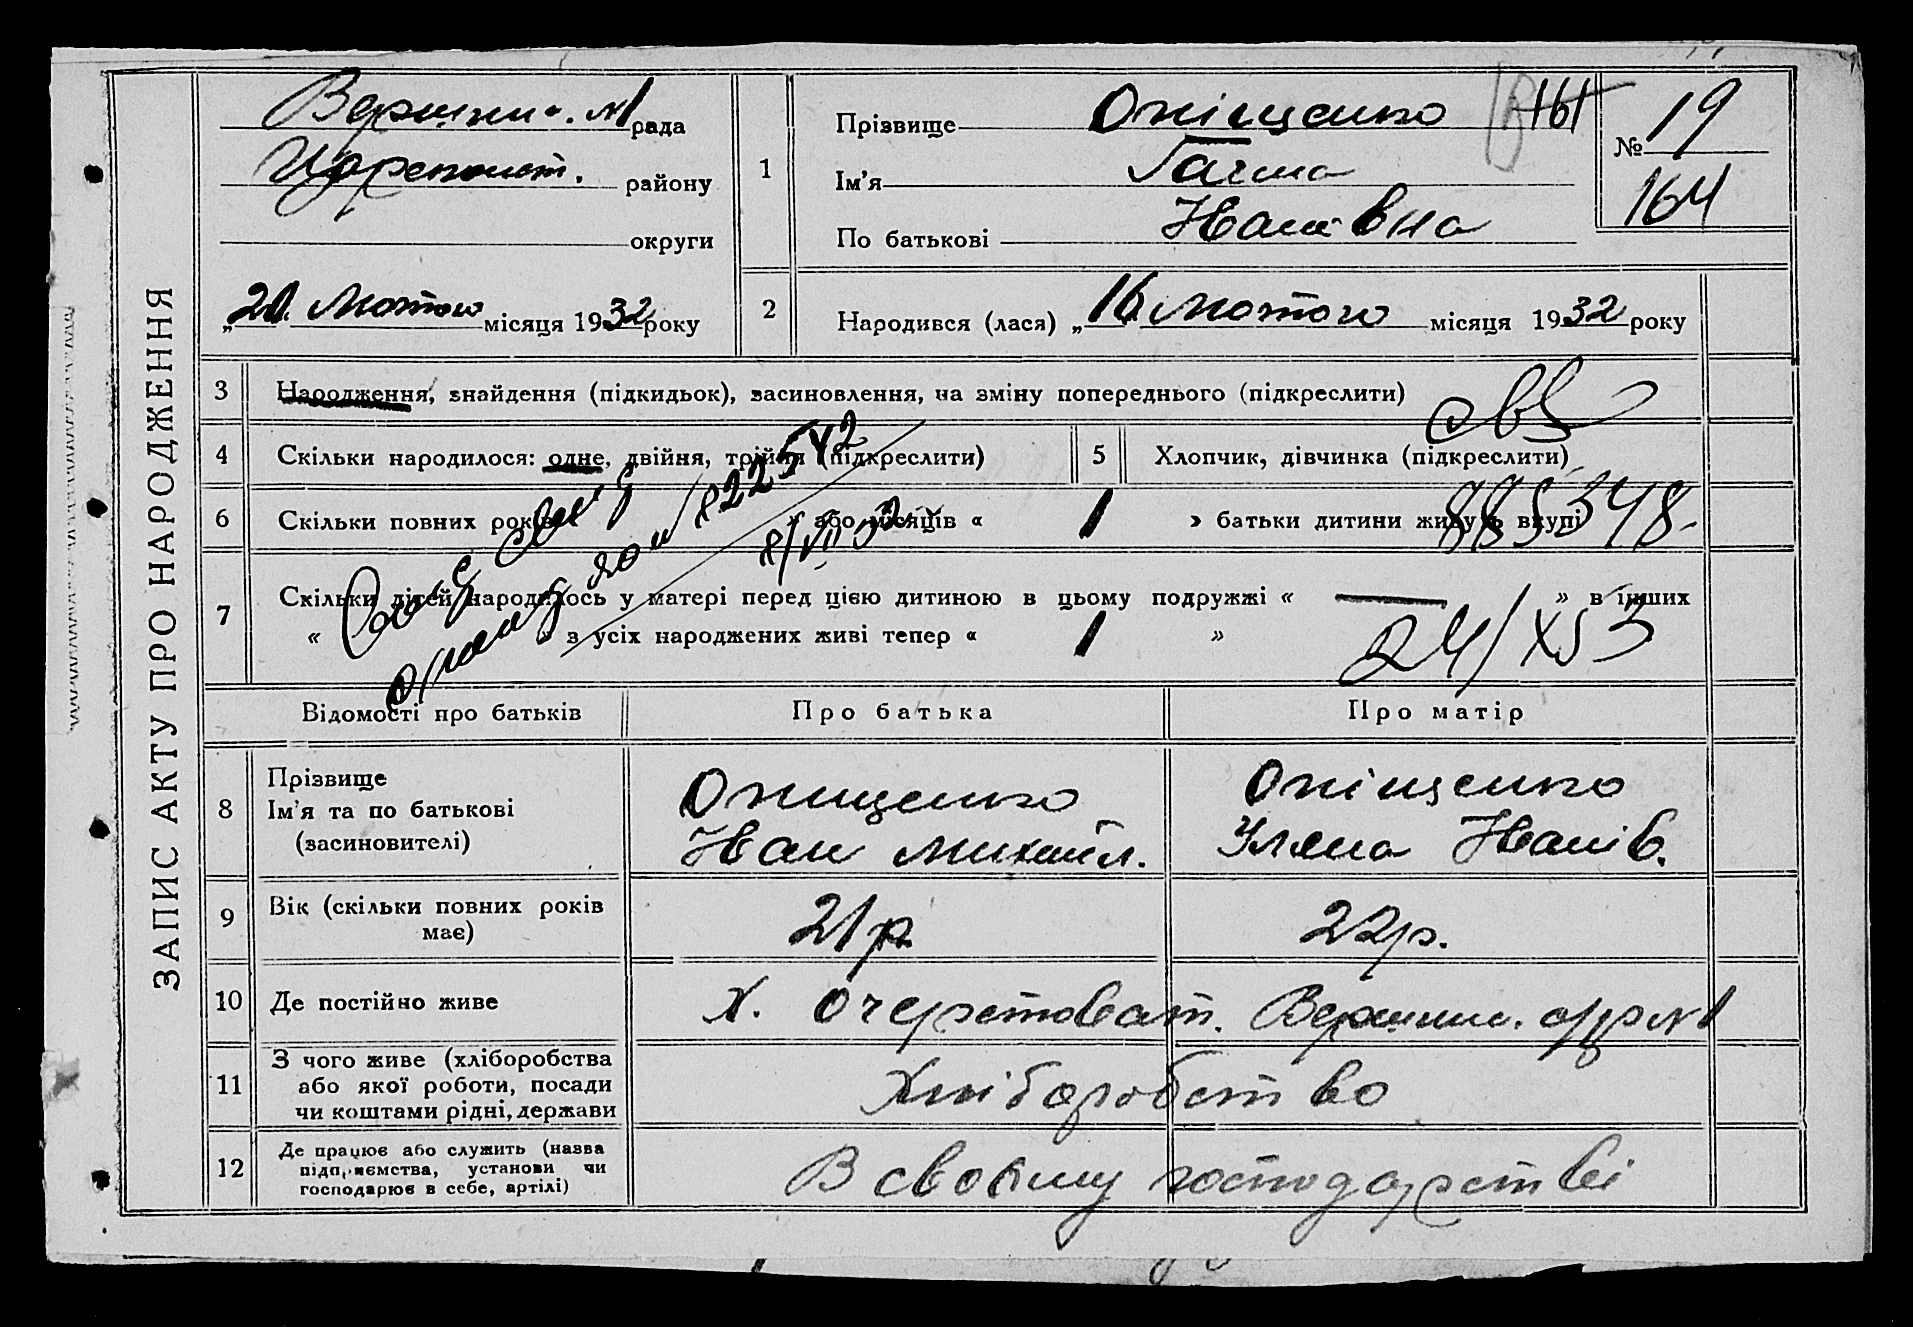 ЗАПИС АКТУ ПРО НАРОДЖЕННЯ
Вершин. №1 рада
району
округи
„20 Лютого місяця 1932 року
1
Прізвище Оніщенко
Ім’я Ганна
По батькові Іванівна
161
№ 19
164
2
Народився (лася) „16 Лютого місяця 1932 року
3 Народження, знайдення (підкидьок), засиновлення, на зміну попереднього (підкреслити)
4 Скільки народилося: одне, двійня, трійня (підкреслити)
5 Хлопчик, дівчинка (підкреслити)
6 Скільки повних років » або місяців « 1 » батьки дитини живуть вкупі
822542
885348
7 Скільки дітей народилось у матері перед цією дитиною в цьому подружжі « — » в інших
« » з усіх народжених живі тепер « 1 »
24/XI 53
Відомості про батьків Про батька Про матір
8 Прізвище
Ім’я та по батькові
(засиновителі)
Онищенко
Іван Михайл.
Оніщенко
Уляна Іванів.
9 Вік (скільки повних років
має)
21 р. 22 р.
10 Де постійно живе Х. Очеретоват. Вершин. с/р №1
11 З чого живе (хліборобства
або якої роботи, посади
чи коштами рідні, держави
Хліборобство
12 Де працює або служить (назва
підприємства, установи чи
господарює в себе, артілі)
В своєму господарстві